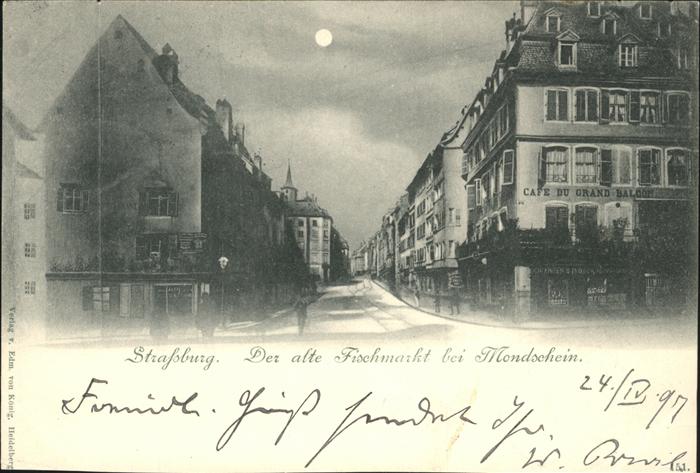 CAFE DU GRAND BALCON
Straßburg. Der alte Fischmarkt bei Mondschein.
24./IV. 97
Freundl. Gruß sendet Ihr
W.
Verlag v. Edm. von König, Heidelberg
151.